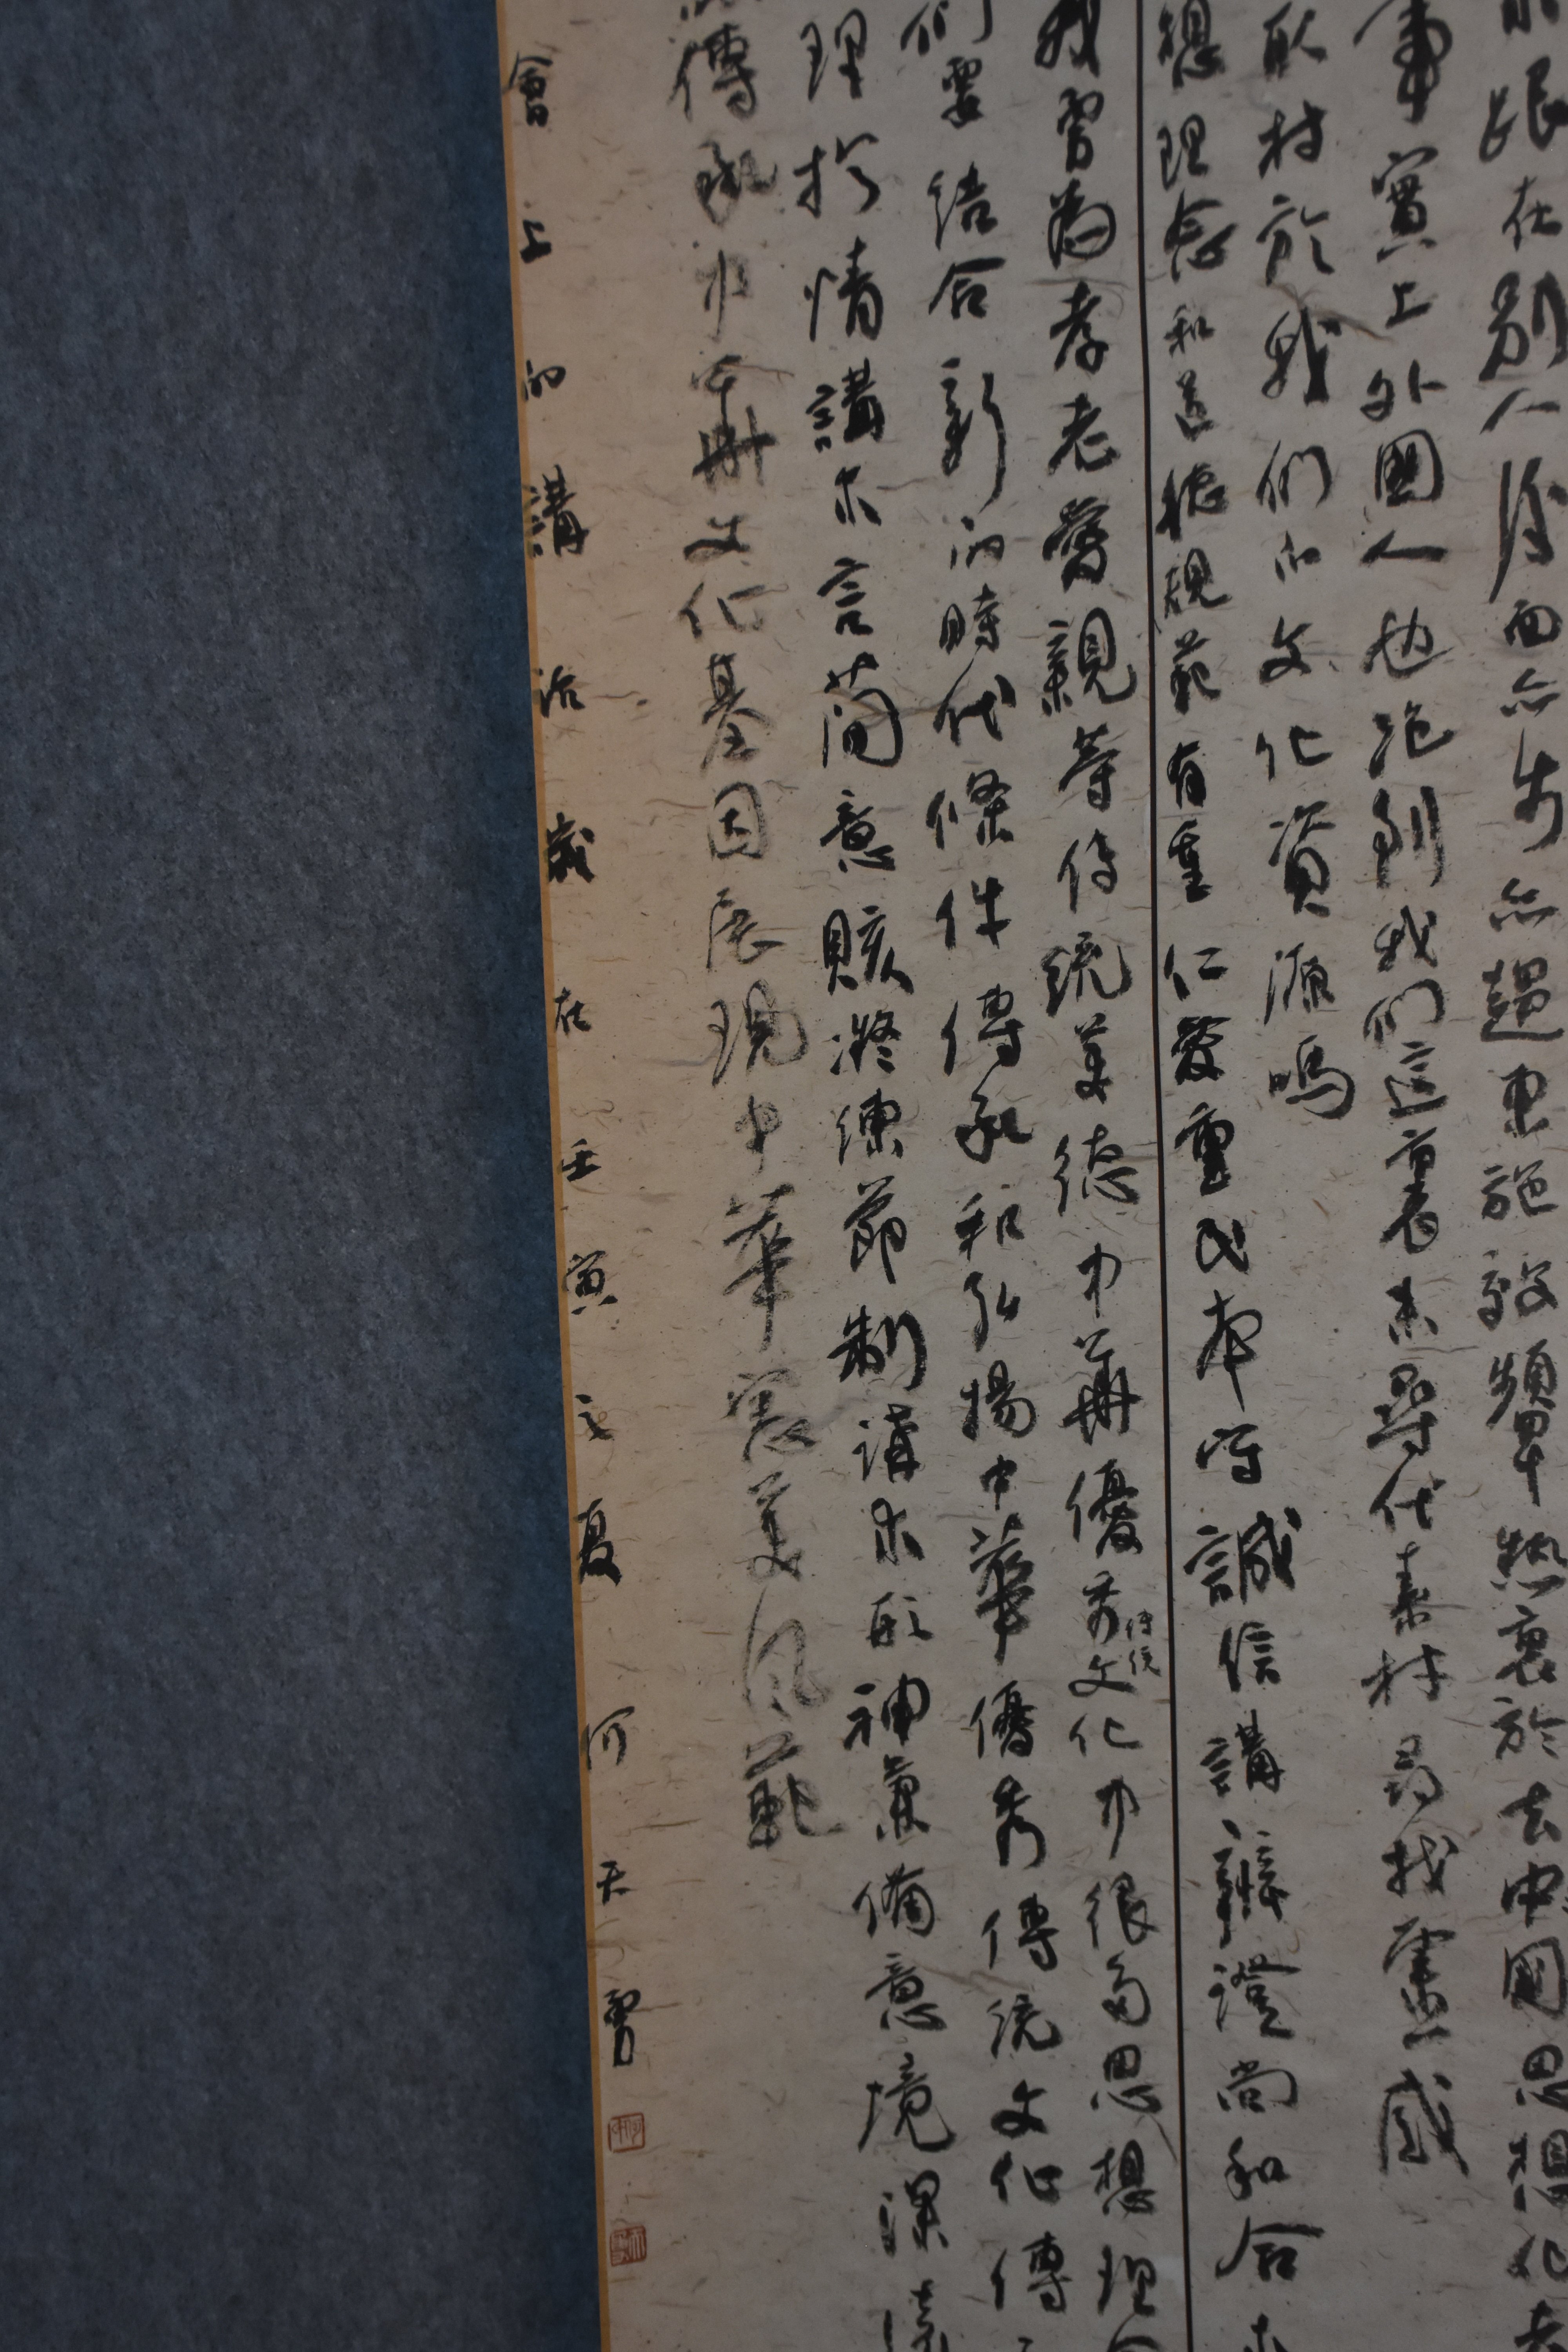 跟在别人後面亦步亦趨東施效顰熱衷於去中國思想化去
事實上外國人也跑到我們這裏來尋代素材尋找靈感
取材於我們的文化資源嗎
想理念和道德規範有重仁愛重民本守誠信講辯證尚和合求
我習為孝老愛親等傳統美德中華優秀傳統文化中很多思想理念
們要結合新的時代條件傳承和弘揚中華優秀傳統文化傳
理於情講求言簡意賅凝練節制講求形神兼備意境深遠
傳承中華文化基因展現中華審美風範
會上的講話歲在壬寅之夏何天勇